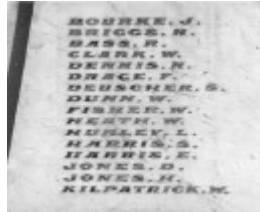 BOURKE. J.
BRIGGS. H.
BASS. R.
CLARK. W.
DENNIS. N.
DRACE. F.
DEUSCHER. S.
DUNN. W.
FISHER. W.
HEATH. W.
HURLEY. L.
HARRIS. S.
HARRIS. E.
JONES. D.
JONES. H.
KILPATRICK. W.